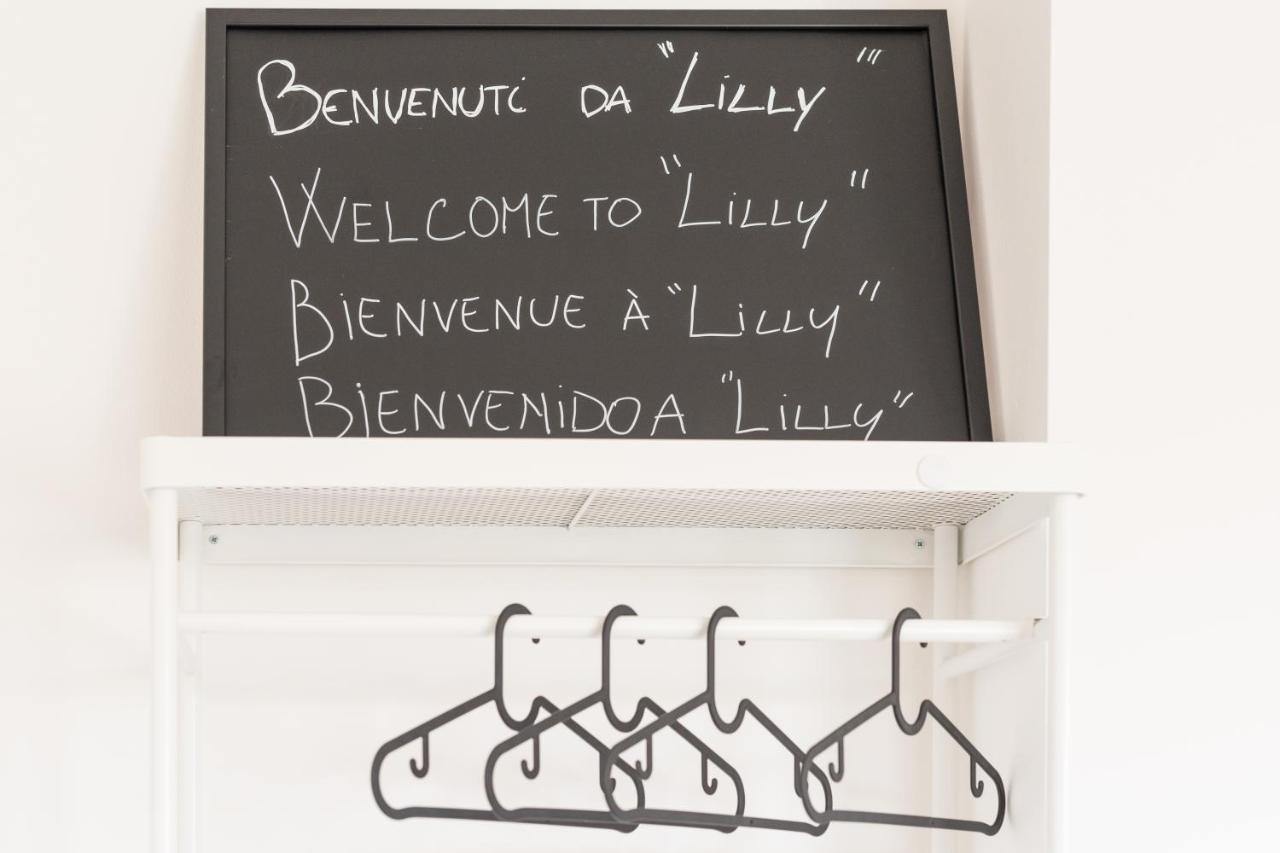 BENVENUTi DA "LiLLY"
WELCOME TO "LiLLY"
BiENVENUE À "LiLLY"
BiENVENIDO A "LiLLY"